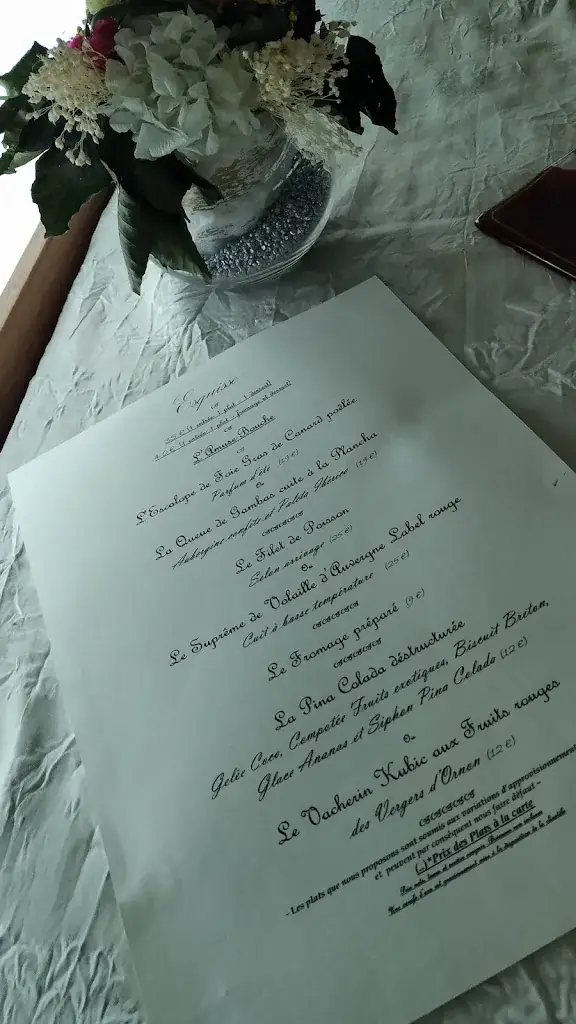 Esquisse
35 € (1 entrée - 1 plat - 1 dessert)
ou
40 € (1 entrée - 1 plat - fromage et dessert)
L'Amuse Bouche
L'Escalope de Foie Gras de Canard poêlée
Parfum d'été (19 €)
Ou
La Queue de Gambas cuite à la Plancha
Aubergine confite et Palets Ibérico (19 €)
Le Filet de Poisson
Selon arrivage (25 €)
Ou
Le Suprême de Volaille d'Auvergne Label rouge
Cuit à basse température (25 €)
Le Fromage préparé (9 €)
La Pina Colada déstructurée
Gelée Coco, Compotée Fruits exotiques, Biscuit Breton,
Glace Ananas et Siphon Pina Colada (12 €)
Ou
Le Vacherin Kubic aux Fruits rouges
des Vergers d'Ornon (12 €)
- Les plats que nous proposons sont soumis aux variations d'approvisionnement
et peuvent par conséquent nous faire défaut -
(..)*Prix des Plats à la carte